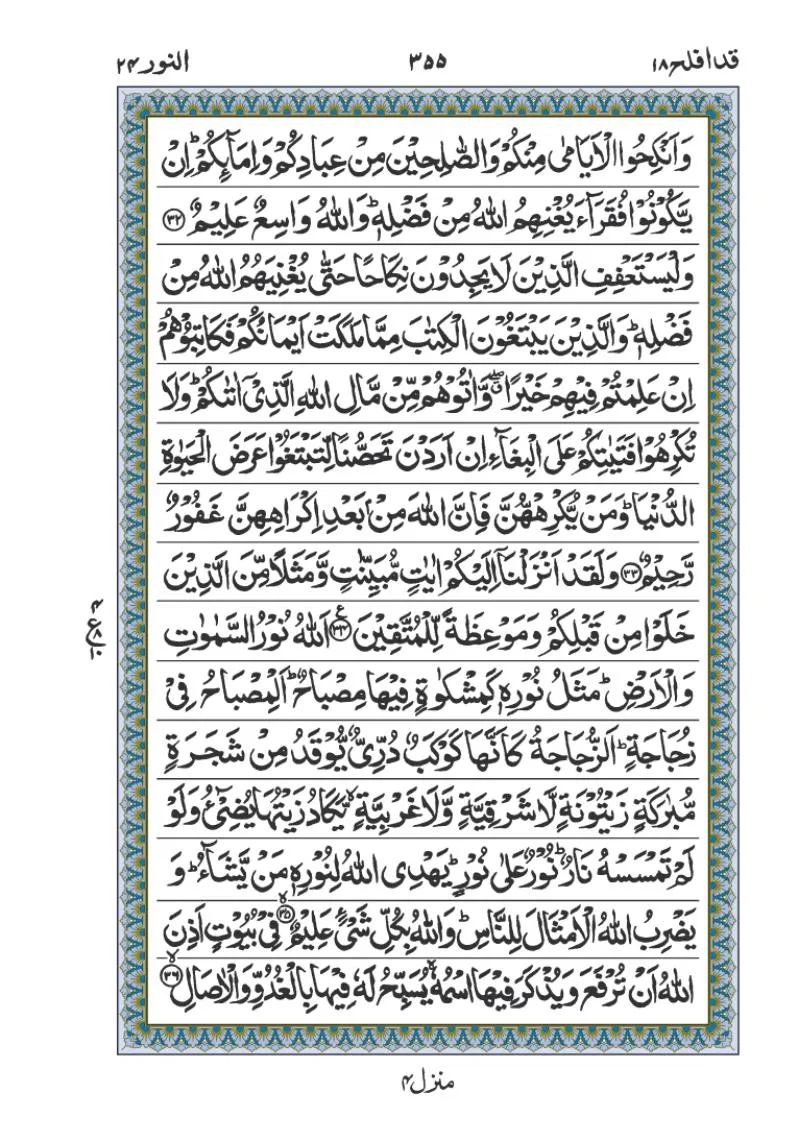 قد افلح ۱۸ ۳۵۵ النور ۲۴
وَاَنْكِحُوا الْاَيَامٰى مِنْكُمْ وَالصّٰلِحِيْنَ مِنْ عِبَادِكُمْ وَاِمَآئِكُمْ ؕ اِنْ
يَّكُوْنُوْا فُقَرَآءَ يُغْنِهِمُ اللّٰهُ مِنْ فَضْلِهٖ ؕ وَاللّٰهُ وَاسِعٌ عَلِيْمٌ ﴿۳۲﴾
وَلْيَسْتَعْفِفِ الَّذِيْنَ لَا يَجِدُوْنَ نِكَاحًا حَتّٰى يُغْنِيَهُمُ اللّٰهُ مِنْ
فَضْلِهٖ ؕ وَالَّذِيْنَ يَبْتَغُوْنَ الْكِتٰبَ مِمَّا مَلَكَتْ اَيْمَانُكُمْ فَكَاتِبُوْهُمْ
اِنْ عَلِمْتُمْ فِيْهِمْ خَيْرًا ۖ ق وَّاٰتُوْهُمْ مِّنْ مَّالِ اللّٰهِ الَّذِىْۤ اٰتٰٮكُمْ ؕ وَلَا
تُكْرِهُوْا فَتَيٰتِكُمْ عَلَى الْبِغَآءِ اِنْ اَرَدْنَ تَحَصُّنًا لِّتَبْتَغُوْا عَرَضَ الْحَيٰوةِ
الدُّنْيَا ؕ وَمَنْ يُّكْرِهْهُّنَّ فَاِنَّ اللّٰهَ مِنْۢ بَعْدِ اِكْرَاهِهِنَّ غَفُوْرٌ
رَّحِيْمٌ ﴿۳۳﴾ وَلَقَدْ اَنْزَلْنَاۤ اِلَيْكُمْ اٰيٰتٍ مُّبَيِّنٰتٍ وَّمَثَلًا مِّنَ الَّذِيْنَ
خَلَوْا مِنْ قَبْلِكُمْ وَمَوْعِظَةً لِّلْمُتَّقِيْنَ ﴿۳۴﴾ ع اَللّٰهُ نُوْرُ السَّمٰوٰتِ
۴ ع ۸ ۱۰
وَالْاَرْضِ ؕ مَثَلُ نُوْرِهٖ كَمِشْكٰوةٍ فِيْهَا مِصْبَاحٌ ؕ اَلْمِصْبَاحُ فِىْ
زُجَاجَةٍ ؕ اَلزُّجَاجَةُ كَاَنَّهَا كَوْكَبٌ دُرِّىٌّ يُّوْقَدُ مِنْ شَجَرَةٍ
مُّبٰرَكَةٍ زَيْتُوْنَةٍ لَّا شَرْقِيَّةٍ وَّلَا غَرْبِيَّةٍ ۙ يَّكَادُ زَيْتُهَا يُضِىْٓءُ وَلَوْ
لَمْ تَمْسَسْهُ نَارٌ ؕ نُوْرٌ عَلٰى نُوْرٍ ؕ يَهْدِى اللّٰهُ لِنُوْرِهٖ مَنْ يَّشَآءُ ؕ وَ
يَضْرِبُ اللّٰهُ الْاَمْثَالَ لِلنَّاسِ ؕ وَاللّٰهُ بِكُلِّ شَىْءٍ عَلِيْمٌ ۙ ﴿۳۵﴾ فِىْ بُيُوْتٍ اَذِنَ
اللّٰهُ اَنْ تُرْفَعَ وَيُذْكَرَ فِيْهَا اسْمُهٗ ۙ يُسَبِّحُ لَهٗ فِيْهَا بِالْغُدُوِّ وَالْاٰصَالِ ۙ ﴿۳۶﴾
منزل ۴